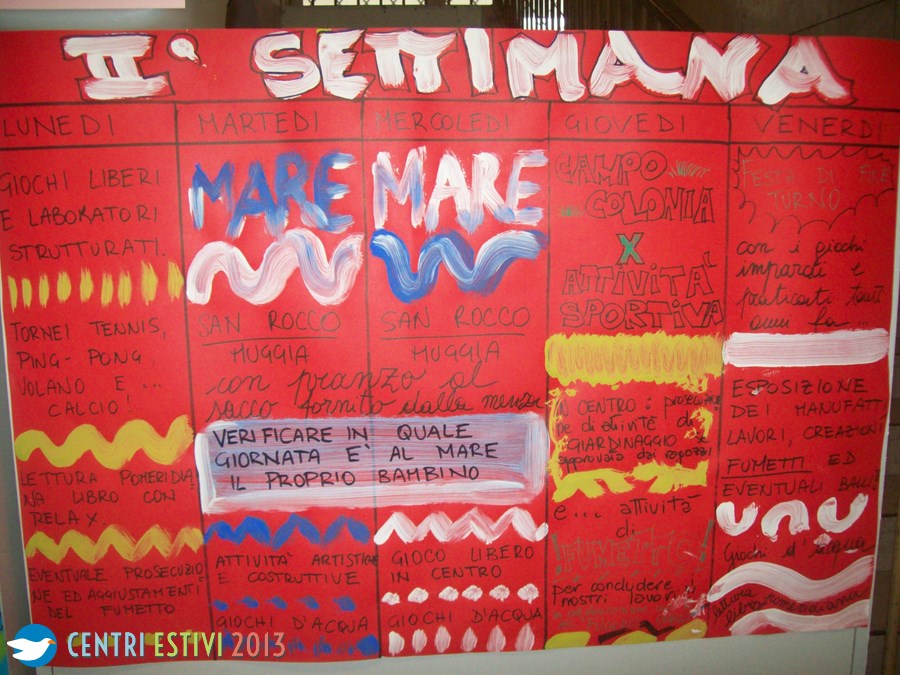 IIª SETTIMANA
LUNEDI
GIOCHI LIBERI
E LABORATORI
STRUTTURATI.
TORNEI TENNIS,
PING-PONG
VOLANO E ...
CALCIO!
LETTURA POMERIDIA
NA LIBRO CON
RELAX
EVENTUALE PROSECUZIO
NE ED AGGIUSTAMENTI
DEL FUMETTO
MARTEDI
MARE
SAN ROCCO
MUGGIA
MERCOLEDI
MARE
SAN ROCCO
MUGGIA
con pranzo al
sacco fornito dalla mensa
VERIFICARE IN QUALE
GIORNATA E' AL MARE
IL PROPRIO BAMBINO
ATTIVITA' ARTISTICHE
E COSTRUTTIVE
GIOCHI D'ACQUA
GIOCO LIBERO
IN CENTRO
GIOCHI D'ACQUA
GIOVEDI
CAMPO
COLONIA
X
ATTIVITA'
SPORTIVA
IN CENTRO:
GIARDINAGGIO se
approvata dai ragazzi
e... attività
di
!FUMETTO!
per concludere
i nostri lavori
VENERDI
FESTA DI FINE
TURNO
con i giochi
imparati e
praticati tanti
anni fa...
ESPOSIZIONE
DEI MANUFATTI
LAVORI, CREAZIONI
FUMETTI ED
EVENTUALI BALLI
Giochi d'acqua
CENTRI ESTIVI 2013